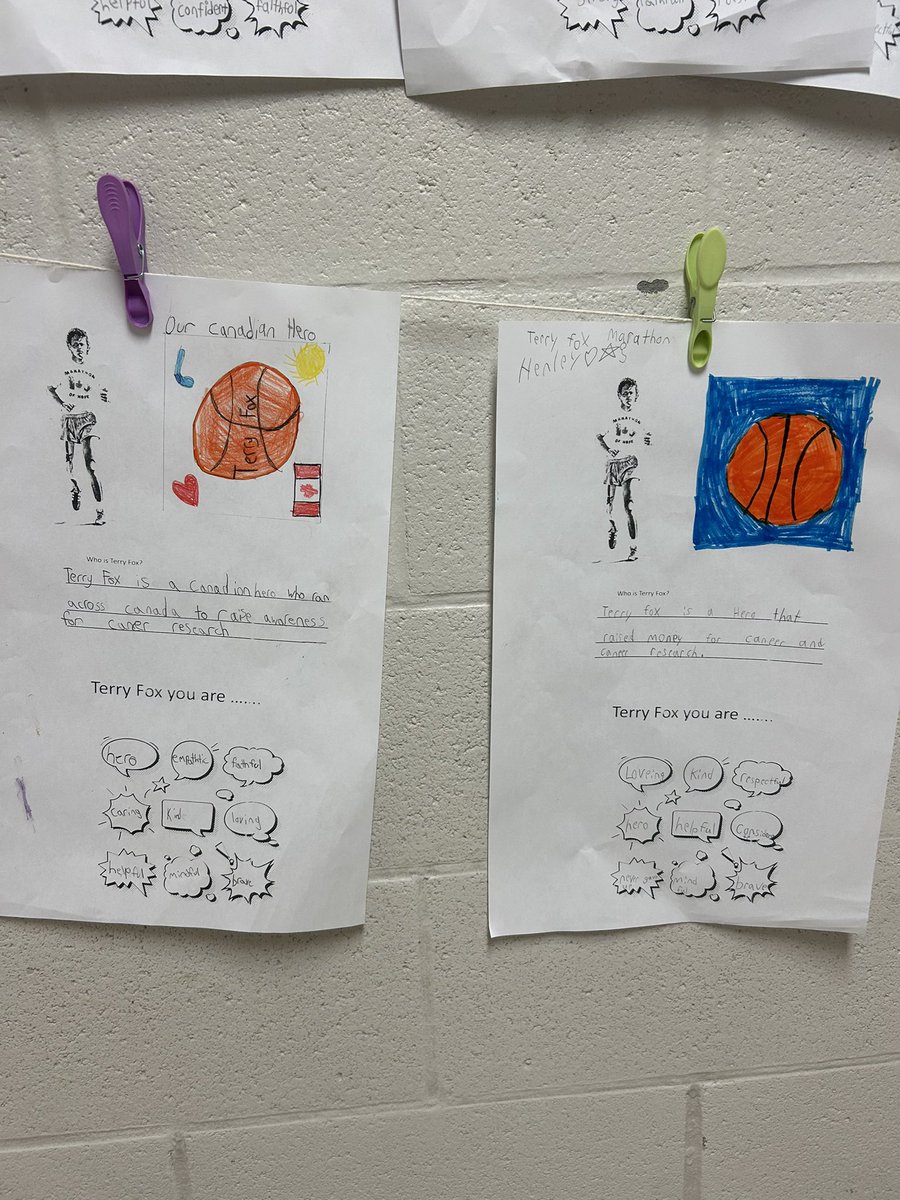 helpful
confident
faithful
Our Canadian Hero
MARATHON
OF HOPE
Terry Fox
Who is Terry Fox?
Terry Fox is a Canadian hero who ran
across canada to raise awareness
for caner research
Terry Fox you are .......
hero
empathtic
faithful
caring
Kind
loving
helpful
mindful
brave
Terry fox Marathon
Henley
MARATHON
OF HOPE
Who is Terry Fox?
Terry fox is a Hero that
raised money for cancer and
cancer research.
Terry Fox you are .......
Loveing
kind
respectful
hero
helpful
mind
ful
brave